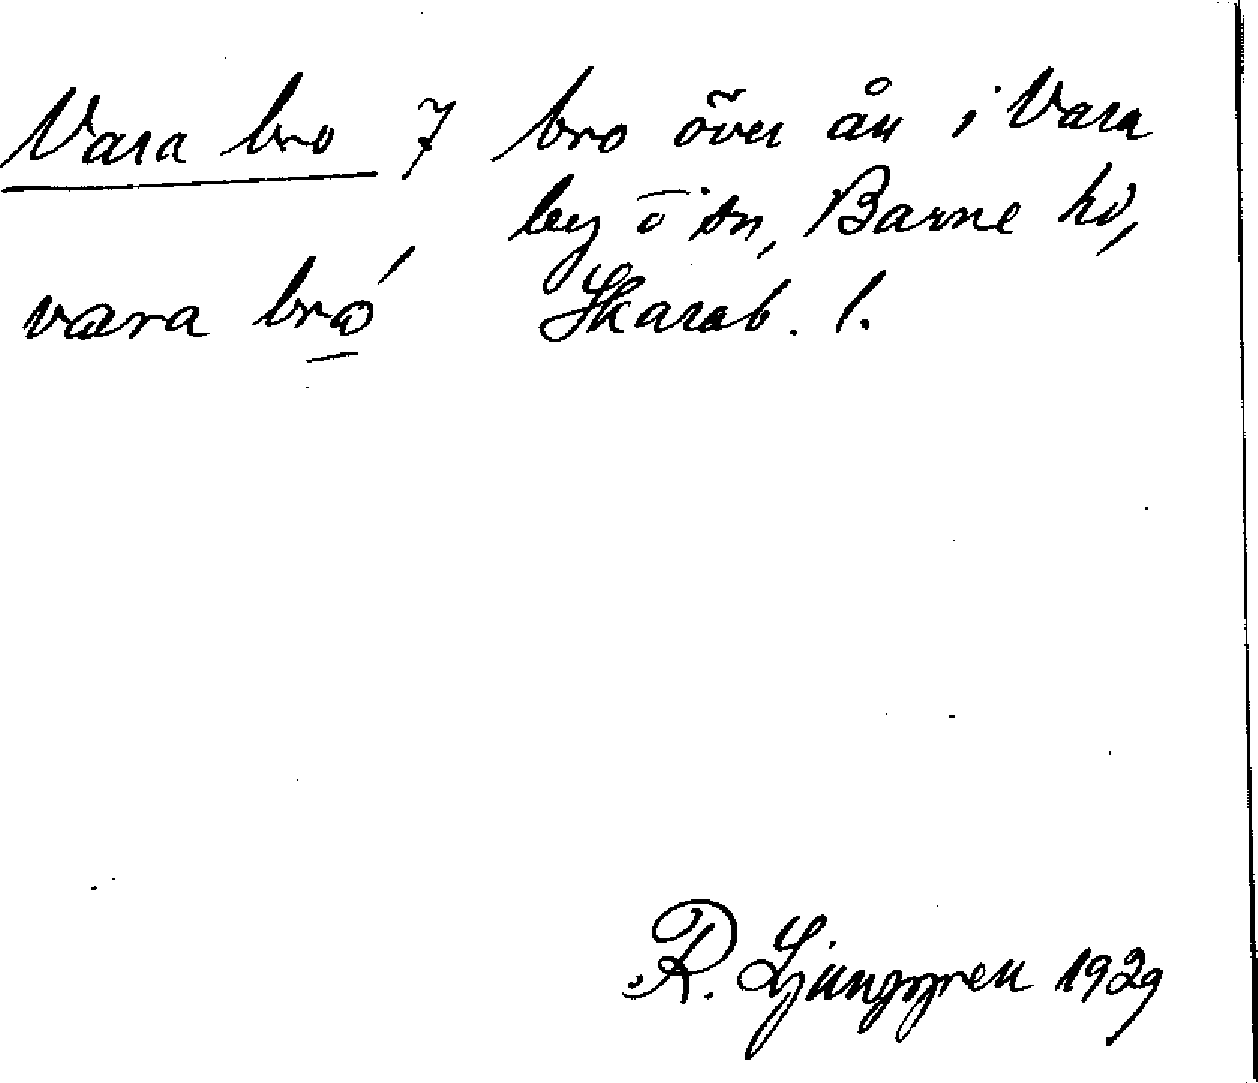 Vara bro 7 bro över ån i Vara
by o sn, Barne hd,
vara bró Skarab. l.
R. Ljunggren 1929